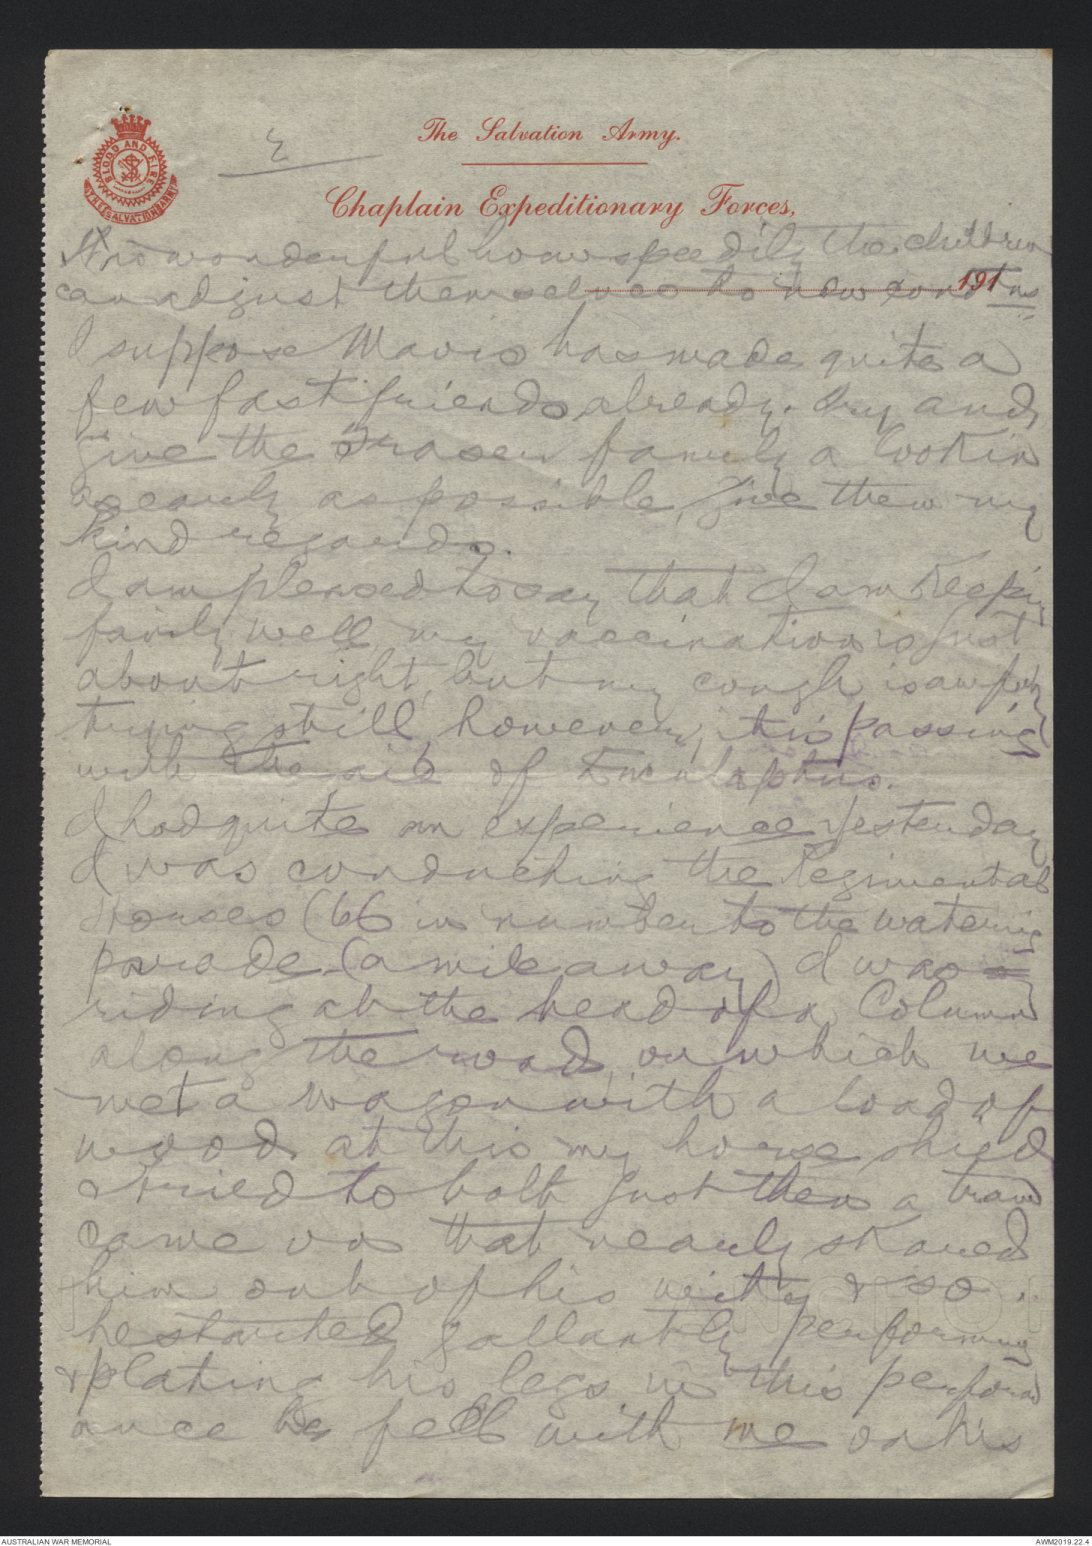 BLOOD AND FIRE
THE SALVATION ARMY
2
The Salvation Army.
Chaplain Expeditionary Forces,
191
It is wonderful how speedily the children
can adjust themselves to new condtns
I suppose Mavis has made quite a
few fast friends already. Try and
give the Fraser family a look in
as early as possible, give them my
kind regards.
I am pleased to say that I am keeping
fairly well, my vaccination is just
about right, but my cough is awfully
trying still, however, it is passing
with the aid of Eucalyptus.
I had quite an experience yesterday
I was conducting the Regimental
Horses (66 in number to the watering
parade (a mile away) I was
riding at the head of a Column
along the road, on which we
met a wagon with a load of
wood at this my horse shied
& tried to bolt just then a tram
came on that nearly skared
him out of his wits & so
he started gallantly performing
& plating his legs in this perform
ance he fell with me on his
AUSTRALIAN WAR MEMORIAL
AWM2019.22.4